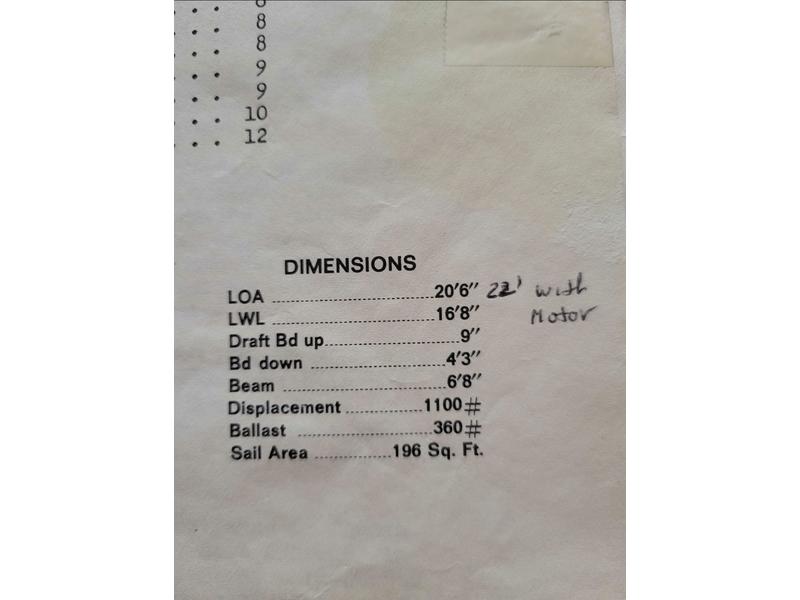 . . . 8
. . . 8
. . . 9
. . . 9
. . . 10
. . . 12
DIMENSIONS
LOA ........................ 20′6″ 22' with
LWL ........................ 16′8″ Motor
Draft Bd up........................ 9″
Bd down ........................ 4′3″
Beam ........................ 6′8″
Displacement ............ 1100#
Ballast ........................ 360#
Sail Area ............ 196 Sq. Ft.